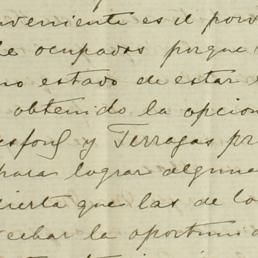 nveniente es el porv
de ocupados porque
no estado de estar
obtenido la opcion
y Terragas pr
para lograr alguna
cierta que las de lo
echar la oportunid